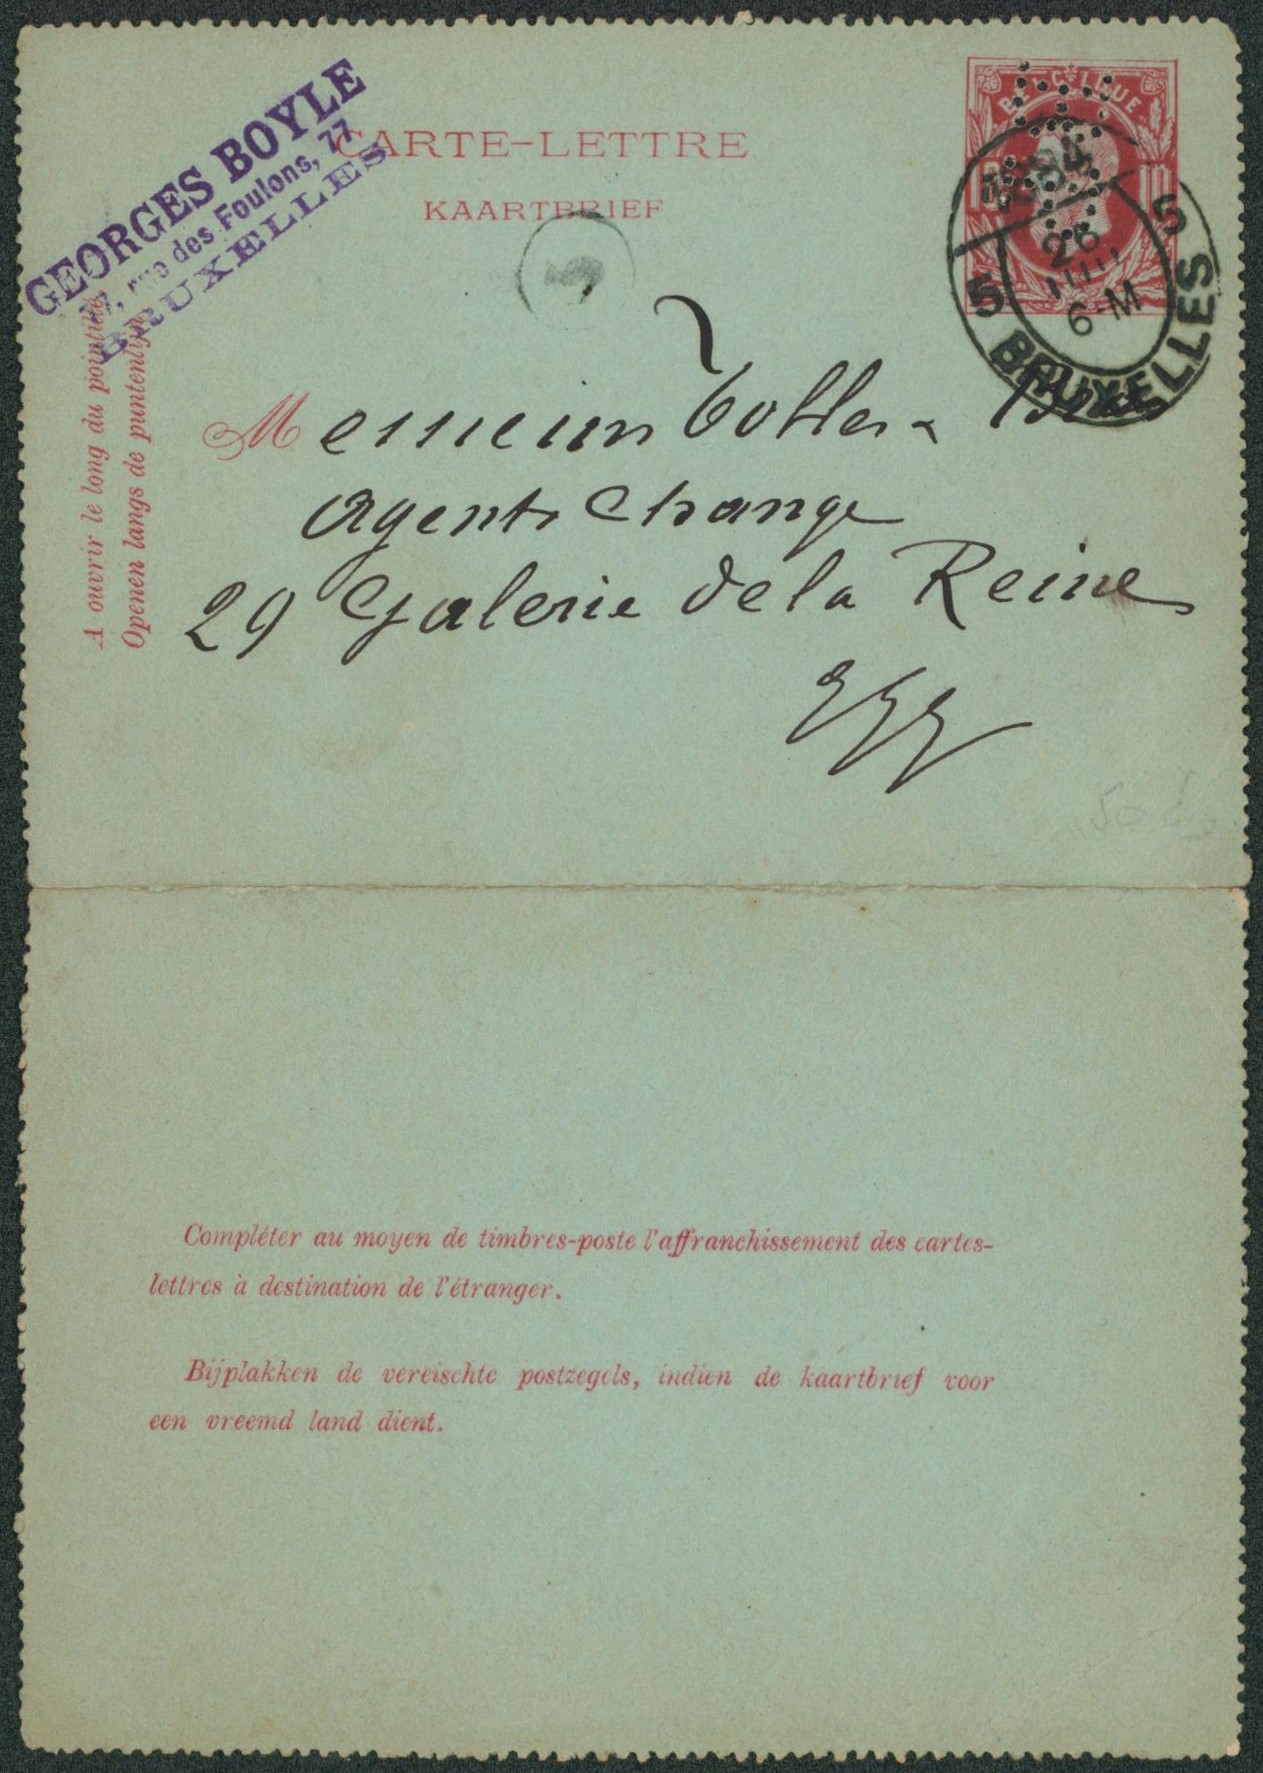 GEORGES BOYLE
77, rue des Foulons, 77
BRUXELLES
CARTE-LETTRE
KAARTBRIEF
BELGIQUE
1894
26
6-M
5 5
BRUXELLES
5
A ouvrir le long du pointillé.
Openen langs de puntenlijn.
Messieurs
Agents Change
29 Galerie de la Reine
E/V
Compléter au moyen de timbres-poste l'affranchissement des cartes-
lettres à destination de l'étranger.
Bijplakken de vereischte postzegels, indien de kaartbrief voor
een vreemd land dient.